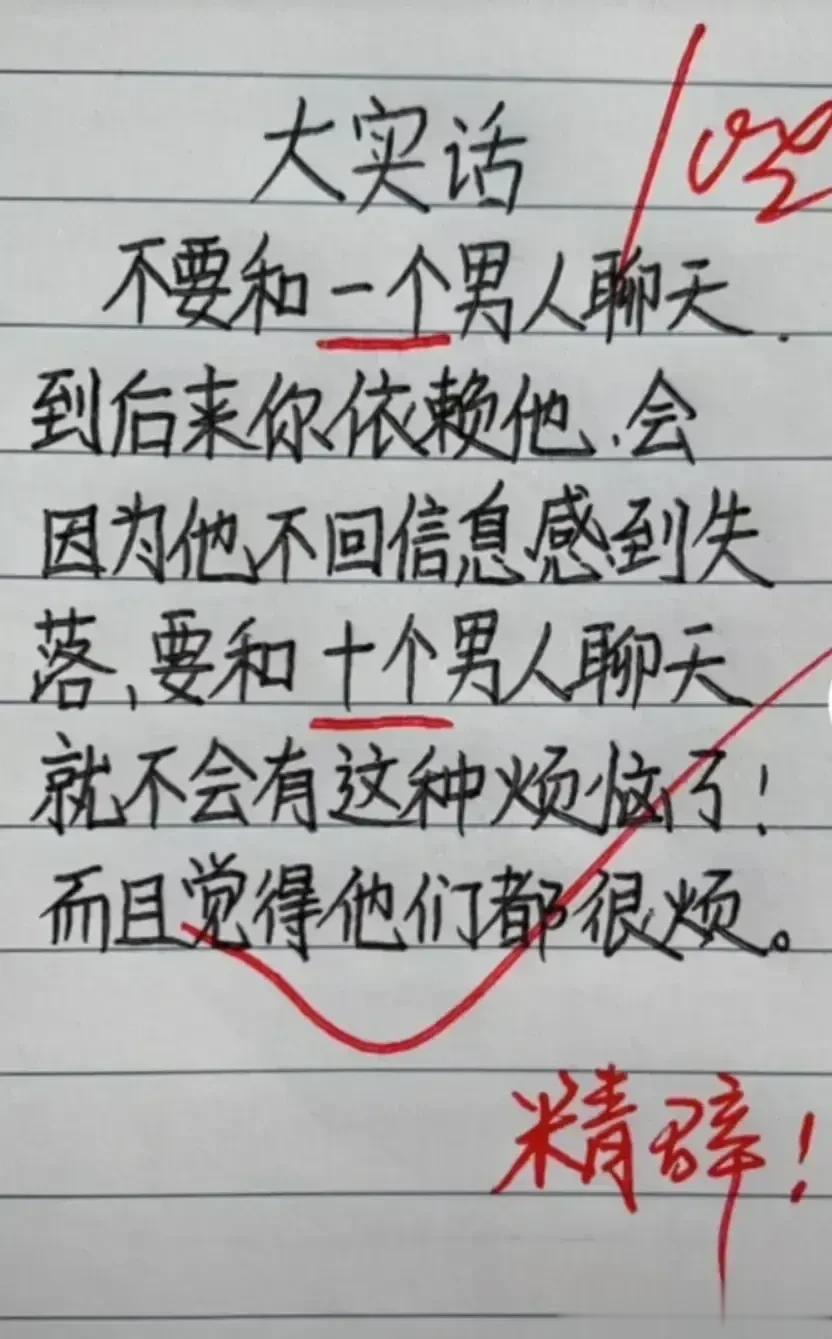 大实话
不要和一个男人聊天.
到后来你依赖他.会
因为他不回信息感到失
落,要和十个男人聊天
就不会有这种烦恼了!
而且觉得他们都很烦。
精辟!